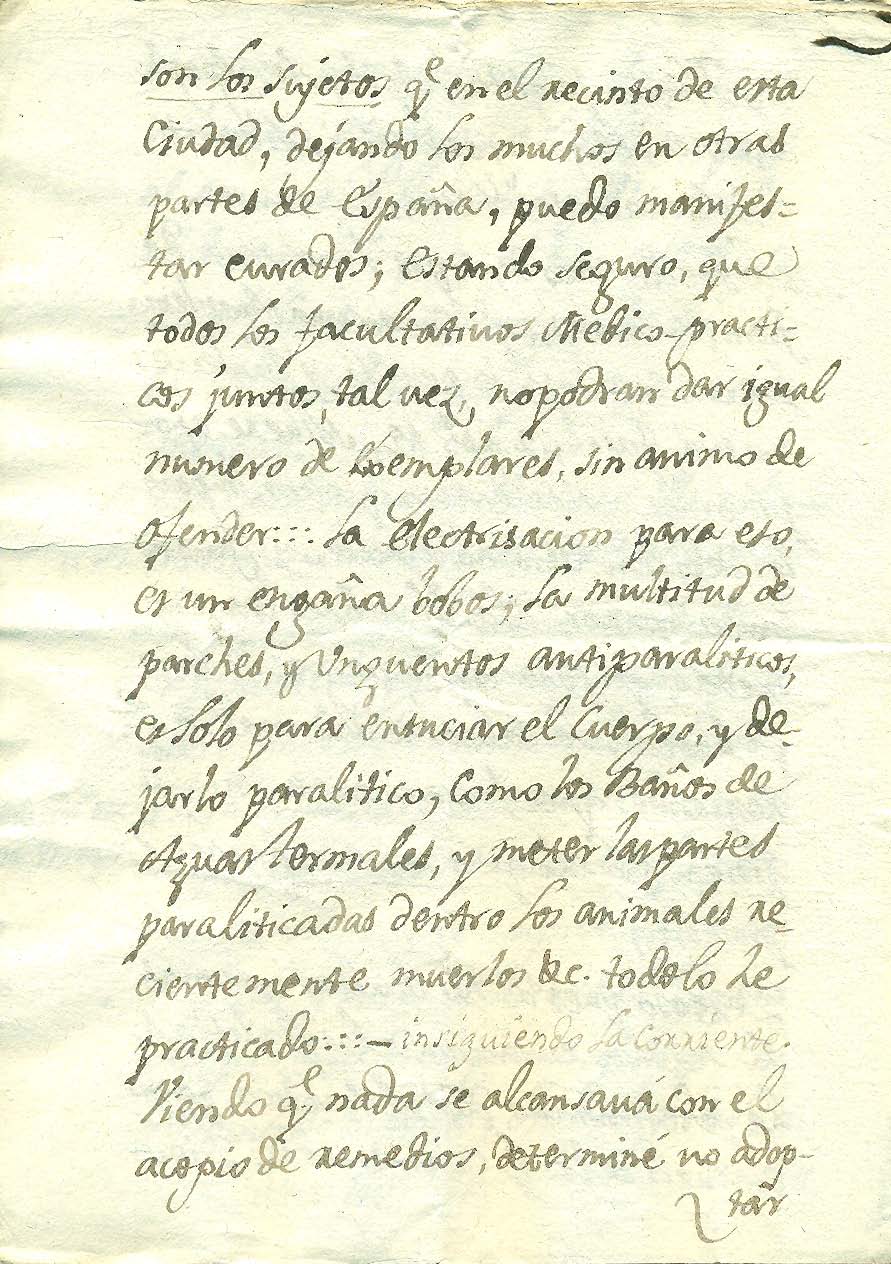 son los sujetos qᵉ en el recinto de esta
Ciudad, dejando los muchos en otras
partes de España, puedo manifes=
tar curados; estando seguro, que
todos los facultativos Medico-practi=
cos juntos, tal vez, no podran dar igual
numero de Exemplares, sin animo de
ofender::: la electrisacion para eso,
es un engaña bobos; la multitud de
parches, y Unguentos antiparaliticos,
es solo para entuciar el Cuerpo, y de-
jarlo paralitico, Como los Baños de
Aguas termales, y meter las partes
paraliticadas dentro los animales re-
cientemente muertos &c. todo lo he
practicado:::- insiguiendo la corriente.
Viendo qᵉ nada se alcansavá con el
acopio de remedios, determiné no adop-
tar